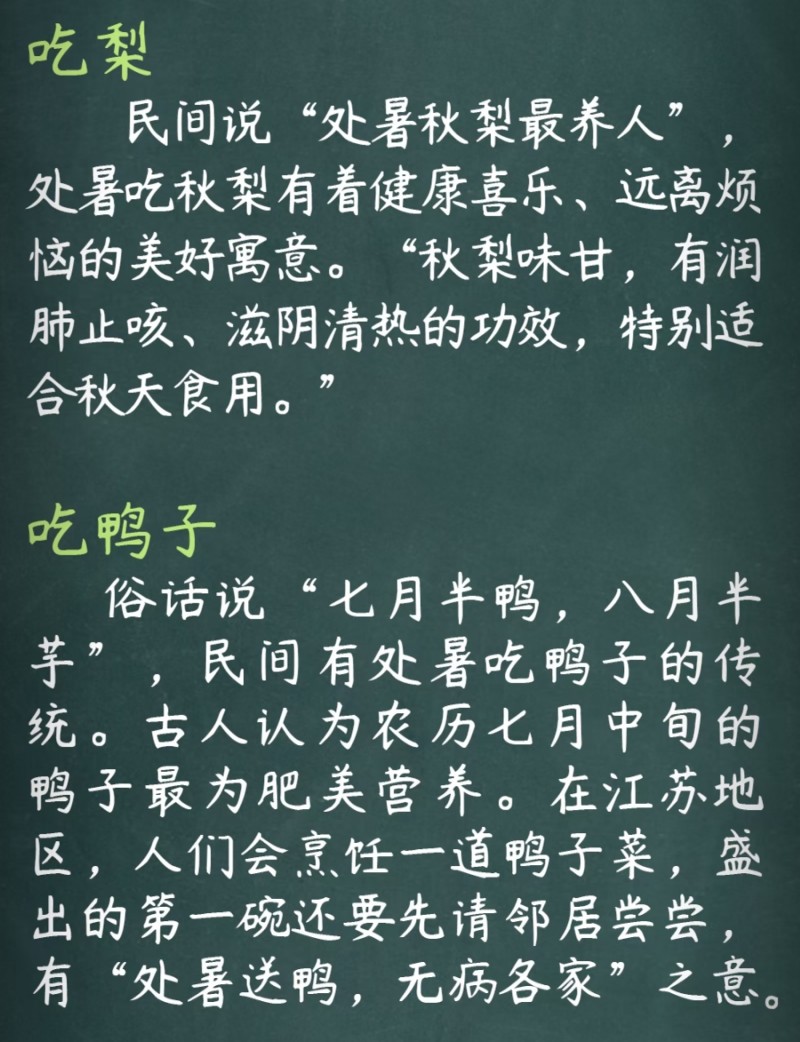 吃梨
民间说“处暑秋梨最养人”，
处暑吃秋梨有着健康喜乐、远离烦
恼的美好寓意。“秋梨味甘，有润
肺止咳、滋阴清热的功效，特别适
合秋天食用。”
吃鸭子
俗话说“七月半鸭，八月半
芋”，民间有处暑吃鸭子的传
统。古人认为农历七月中旬的
鸭子最为肥美营养。在江苏地
区，人们会烹饪一道鸭子菜，盛
出的第一碗还要先请邻居尝尝，
有“处暑送鸭，无病各家”之意。